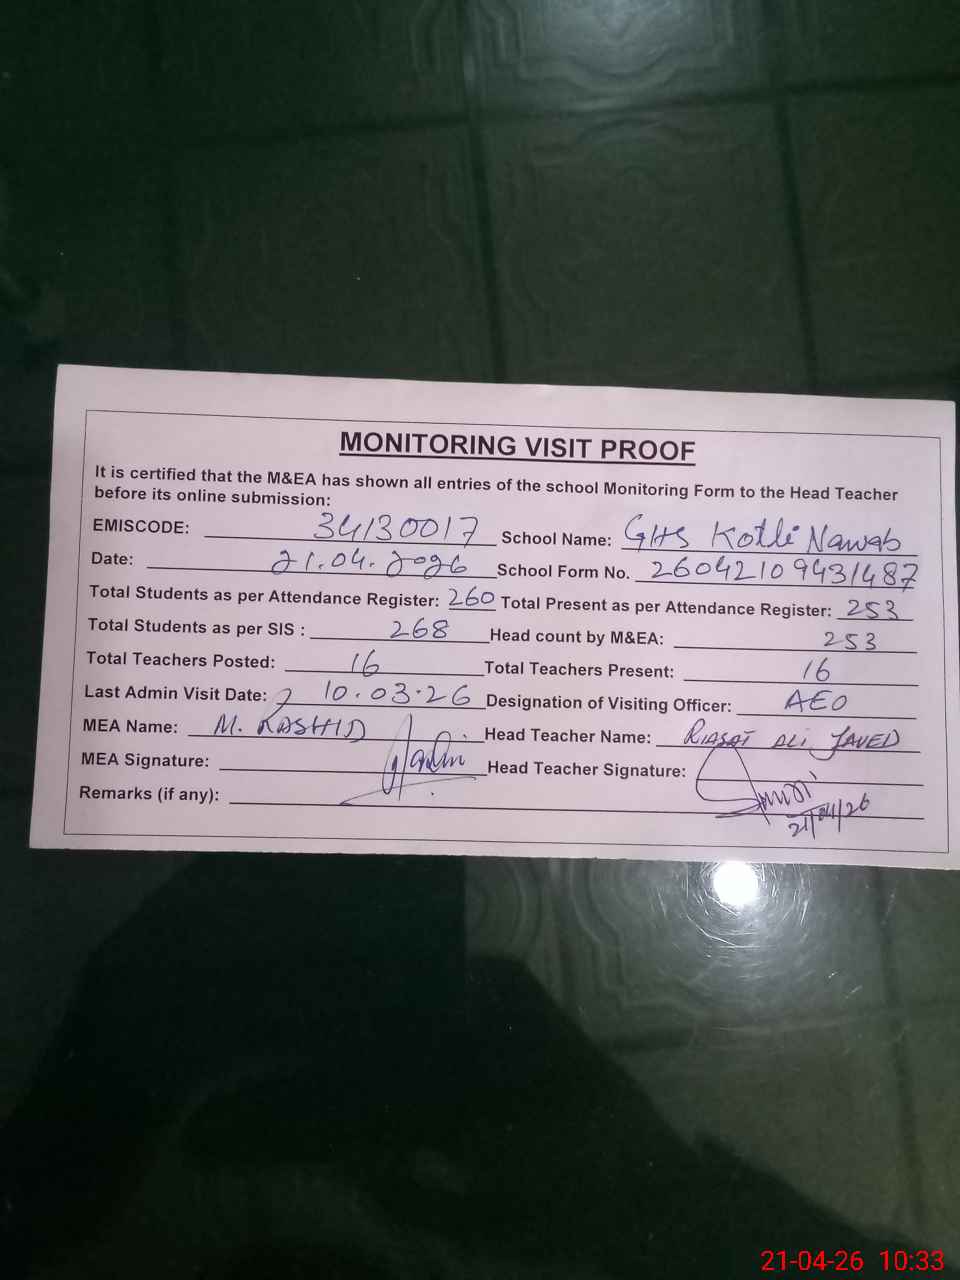 MONITORING VISIT PROOF
It is certified that the M&EA has shown all entries of the school Monitoring Form to the Head Teacher
before its online submission:
EMISCODE: 34130017 School Name: GHS Kotli Nawab
Date: 21.04.2026 School Form No. 26042109431487
Total Students as per Attendance Register: 260 Total Present as per Attendance Register: 253
Total Students as per SIS : 268 Head count by M&EA: 253
Total Teachers Posted: 16 Total Teachers Present: 16
Last Admin Visit Date: 10.03.26 Designation of Visiting Officer: AEO
MEA Name: M. RASHID Head Teacher Name: RIASAT ALI JAVED
MEA Signature: Head Teacher Signature:
Remarks (if any): 21/04/26
21-04-26 10:33